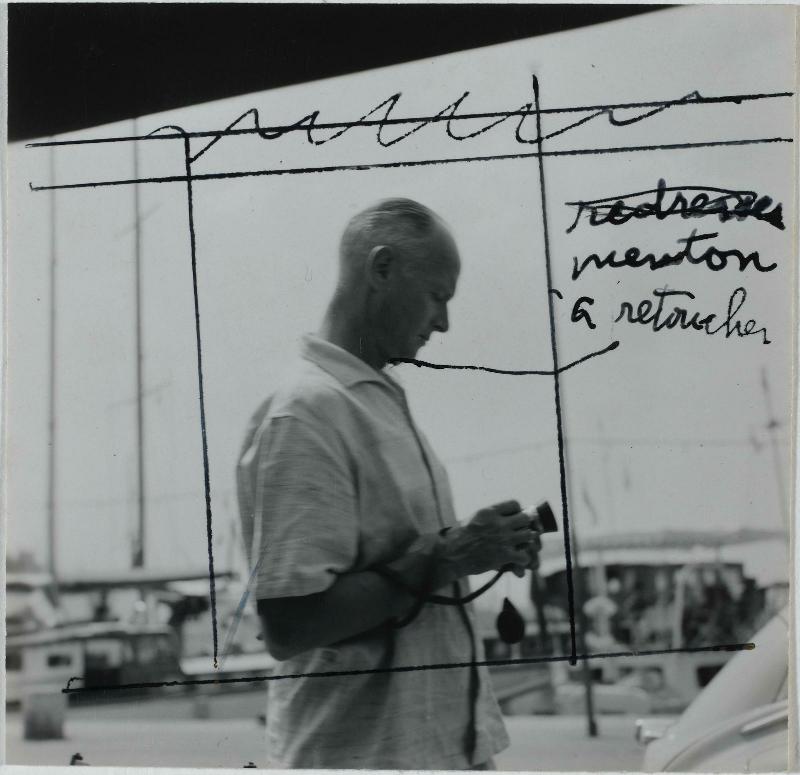 redresser
menton
à retoucher